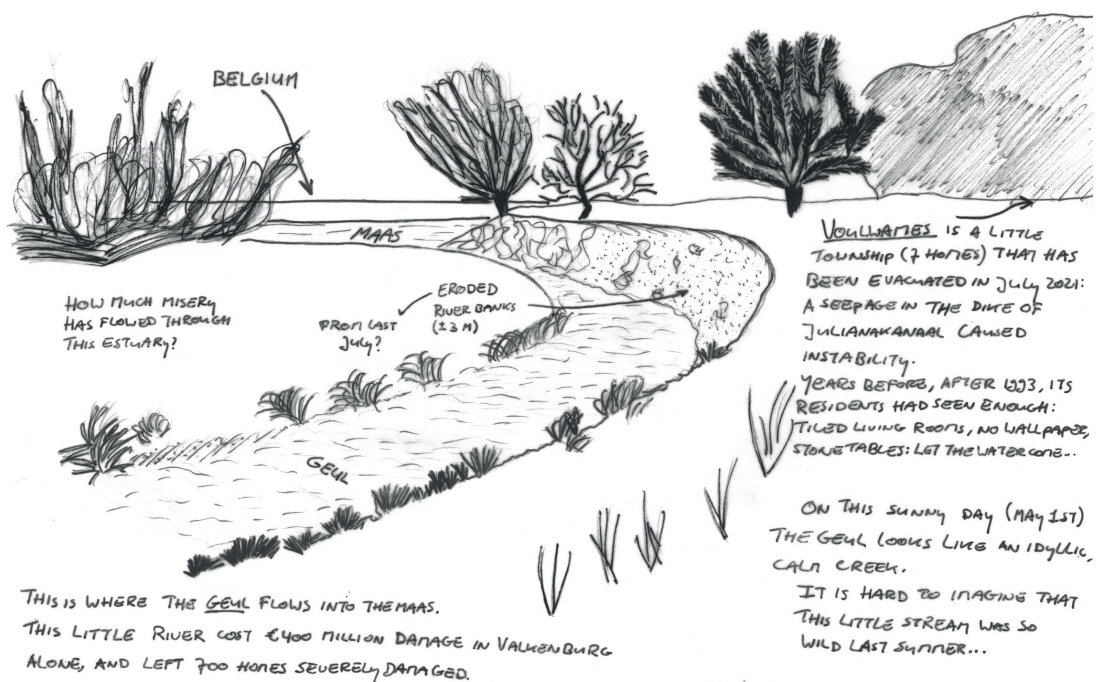 BELGIUM
MAAS
HOW MUCH MISERY
HAS FLOWED THROUGH
THIS ESTUARY?
FROM LAST
JULY?
ERODED
RIVER BANKS
(±3 M)
GEUL
VOULWAMES IS A LITTLE
TOWNSHIP (7 HOMES) THAT HAS
BEEN EVACUATED IN JULY 2021:
A SEEPAGE IN THE DIKE OF
JULIANAKANAAL CAUSED
INSTABILITY.
YEARS BEFORE, AFTER 1993, ITS
RESIDENTS HAD SEEN ENOUGH:
TILED LIVING ROOMS, NO WALLPAPER,
STONE TABLES: LET THE WATER COME...
ON THIS SUNNY DAY (MAY 1ST)
THE GEUL LOOKS LIKE AN IDYLLIC,
CALM CREEK.
IT IS HARD TO IMAGINE THAT
THIS LITTLE STREAM WAS SO
WILD LAST SUMMER...
THIS IS WHERE THE GEUL FLOWS INTO THE MAAS.
THIS LITTLE RIVER COST €400 MILLION DAMAGE IN VALKENBURG
ALONE, AND LEFT 700 HOMES SEVERELY DAMAGED.